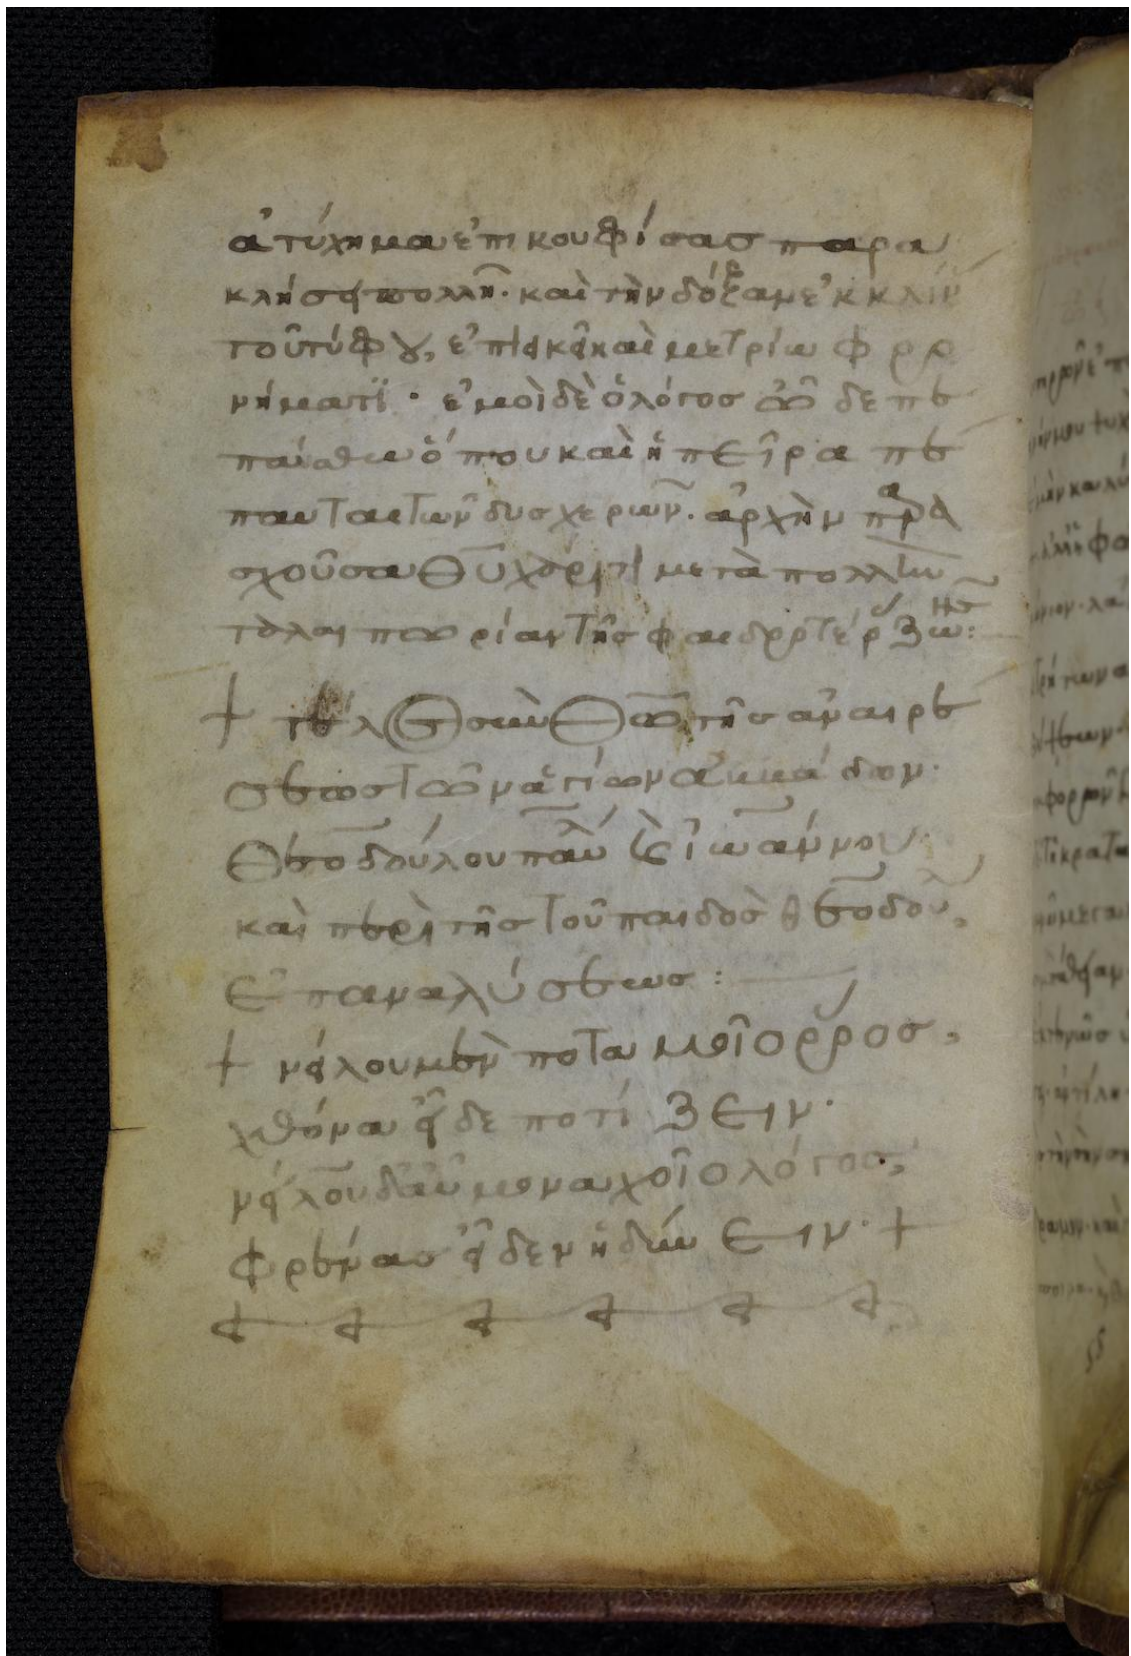 ἀτύχημα ἐπικουφίσας παρα
κλήσει πολλῆ· καὶ τὴν δόξαμεν ἐκκλίν
τοῦ τύφου, ἐπιεικεῖ καὶ μετρίω φρο
νήματι· ἐμοὶ δὲ ὁ λόγος ὧδε πε
παύσθω ὅπου καὶ ἡ πεῖρα πέ
παυται τῶν δυσχερῶν· ἀρχὴν παρα
σχοῦσα θυ χάριτι μετὰ πολλὴν
ταλαιπωρίαν τῆς φαιδροτέρ ζωῆς:
+ τέλος σὺν θω τῆς ἀναιρέ
σεως τῶν ἁγίων ἀββάδων·
Θεοδούλου παύλ καὶ ἰωάννου·
καὶ περὶ τῆς τοῦ παιδὸς θεοδού,
ἐπαναλύσεως:
+ νείλου μὲν ποταμοῖο ῥόος,
χθόνα οἶδε ποτίζειν·
νείλου δ' αὖ μοναχοῖο λόγος,
φρένας οἶδεν ἡδύνειν· +